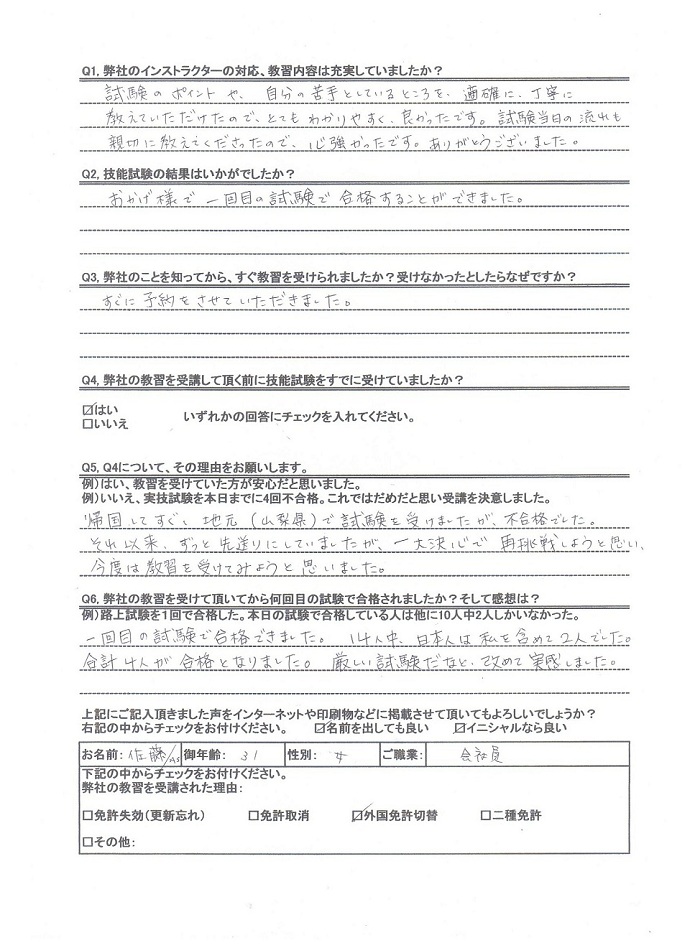 Q1, 弊社のインストラクターの対応、教習内容は充実していましたか？
試験のポイントや、自分の苦手としているところを、適確に、丁寧に
教えていただけたので、とてもわかりやすく、良かったです。試験当日の流れも
親切に教えてくださったので、心強かったです。ありがとうございました。
Q2, 技能試験の結果はいかがでしたか？
おかげ様で一回目の試験で合格することができました。
Q3, 弊社のことを知ってから、すぐ教習を受けられましたか？受けなかったとしたらなぜですか？
すぐに予約をさせていただきました。
Q4, 弊社の教習を受講して頂く前に技能試験をすでに受けていましたか？
☑はい
□いいえ いずれかの回答にチェックを入れてください。
Q5, Q4について、その理由をお願いします。
例）はい、教習を受けていた方が安心だと思いました。
例）いいえ、実技試験を本日までに4回不合格。これではだめだと思い受講を決意しました。
帰国してすぐ、地元（山梨県）で試験を受けましたが、不合格でした。
それ以来、ずっと先送りにしていましたが、一大決心で再挑戦しようと思い、
今度は教習を受けてみようと思いました。
Q6, 弊社の教習を受けて頂いてから何回目の試験で合格されましたか？そして感想は？
例）路上試験を1回で合格した。本日の試験で合格している人は他に10人中2人しかいなかった。
一回目の試験で合格できました。14人中、日本人は私を含めて2人でした。
合計4人が合格となりました。厳しい試験だなと、改めて実感しました。
上記にご記入頂きました声をインターネットや印刷物などに掲載させて頂いてもよろしいでしょうか？
右記の中からチェックをお付けください。 ☑名前を出しても良い ☑イニシャルなら良い
お名前: 佐藤 御年齢: 31 性別: 女 ご職業: 会社員
下記の中からチェックをお付けください。
弊社の教習を受講された理由:
□免許失効（更新忘れ） □免許取消 ☑外国免許切替 □二種免許
□その他: